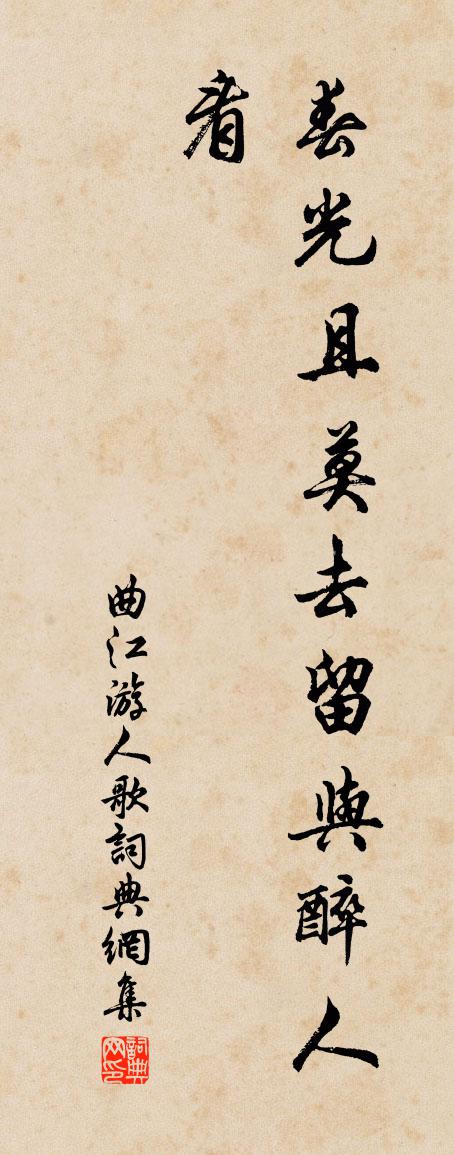 春光且莫去留與醉人
看
曲江游人歌詞典網集
詞典
网印